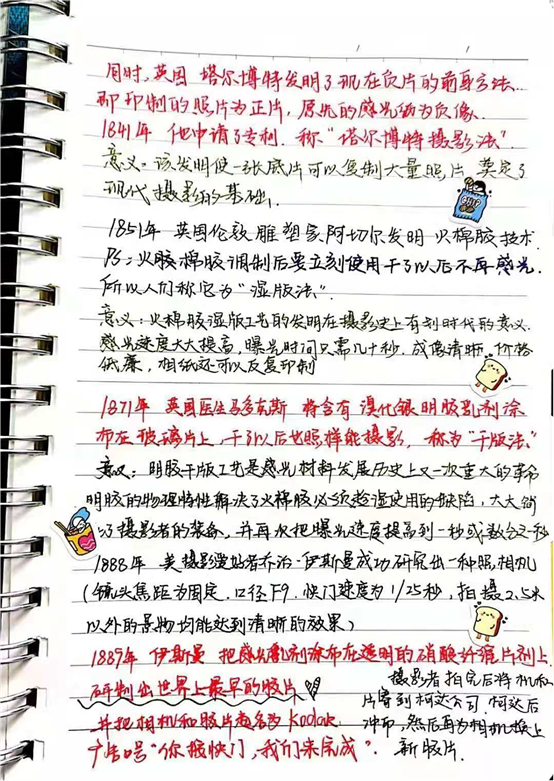 同时,英国 塔尔博特发明了现在负片的前身方法.
即印制的照片为正片,原先的感光纸为负像.
1841年 他申请了专利.称"塔尔博特摄影法".
意义:该发明使一张底片可以复制大量照片 奠定了
现代摄影的基础.
1851年 英国伦敦雕塑家阿切尔发明 火棉胶技术.
因:火胶棉胶调制后要立刻使用干了以后不再感光.
所以人们称它为"湿版法".
意义:火棉胶湿版工艺的发明在摄影史上有划时代的意义.
感光速度大大提高,曝光时间只需几十秒.成像清晰.价格
低廉,相纸还可以反复印制
1871年 英国医生马多克斯 将含有溴化银明胶乳剂涂
布在玻璃片上,干了以后也照样能摄影,称为"干版法".
意义:明胶干版工艺是感光材料发展历史上又一次重大的革命
明胶的物理特性解决了火棉胶必须趁湿使用的缺陷,大大简
化了摄影者的装备,并再次把曝光速度提高到一秒或数分之一秒
1888年 美摄影爱好者乔治·伊斯曼成功研究出一种照相机
(镜头焦距为固定.口径F9.快门速度为1/25秒,拍摄2.5米
以外的景物均能达到清晰的效果)
1889年 伊斯曼 把感光乳剂涂布在透明的硝酸纤维片剂上.
研制出世界上最早的胶片
并把相机和胶片起名为Kodak
广告口号"你按快门,我们来完成".
摄影者拍完后将机和
片寄到柯达公司.柯达后
冲布,然后再为相机换上
新胶片.